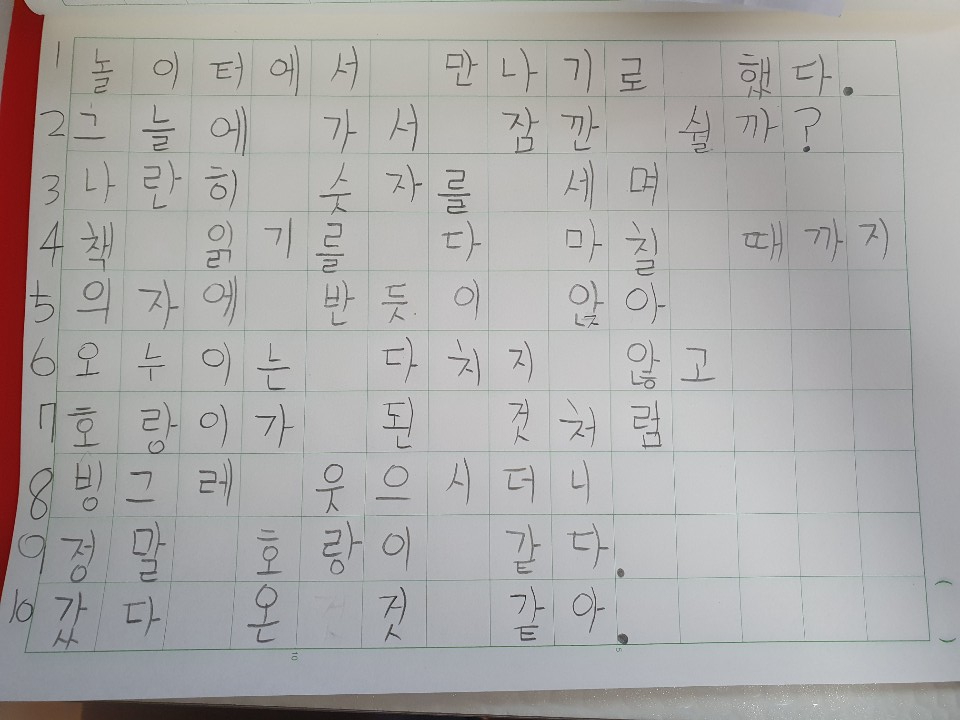 1 놀이터에서 만나기로 했다.
2 그늘에 가서 잠깐 쉴까?
3 나란히 숫자를 세며
4 책 읽기를 다 마칠 때까지
5 의자에 반듯이 앉아
6 오누이는 다치지 않고
7 호랑이가 된 것처럼
8 빙그레 웃으시더니
9 정말 호랑이 같다.
10 갔다 온 것 같아.